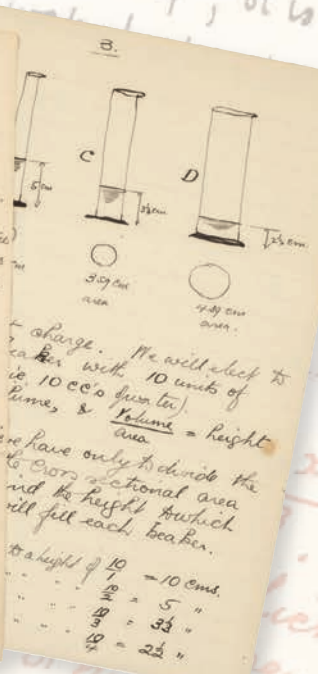 3.
C
D
5 cm
3⅓ cm.
2½ cm.
3 sq cm
area
4 sq cm
area.
charge. We will elect to
with 10 units of
ie 10 cc's of water).
lume, & Volume/area = height
we have only to divide the
cross sectional area
ind the height to which
will fill each beaker.
to a height of 10/1 = 10 cms.
" " " 10/2 = 5 "
" " " 10/3 = 3⅓ "
" " " 10/4 = 2½ "